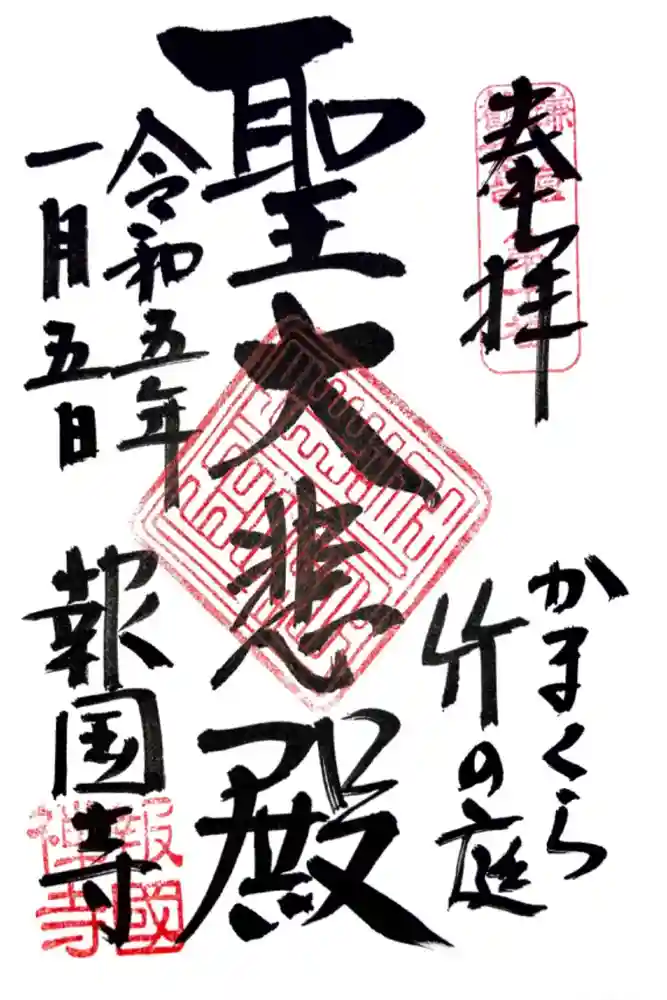 奉拝
かまくら
竹の庭
聖大悲殿
令和五年
一月五日
報国寺
報國
禅寺